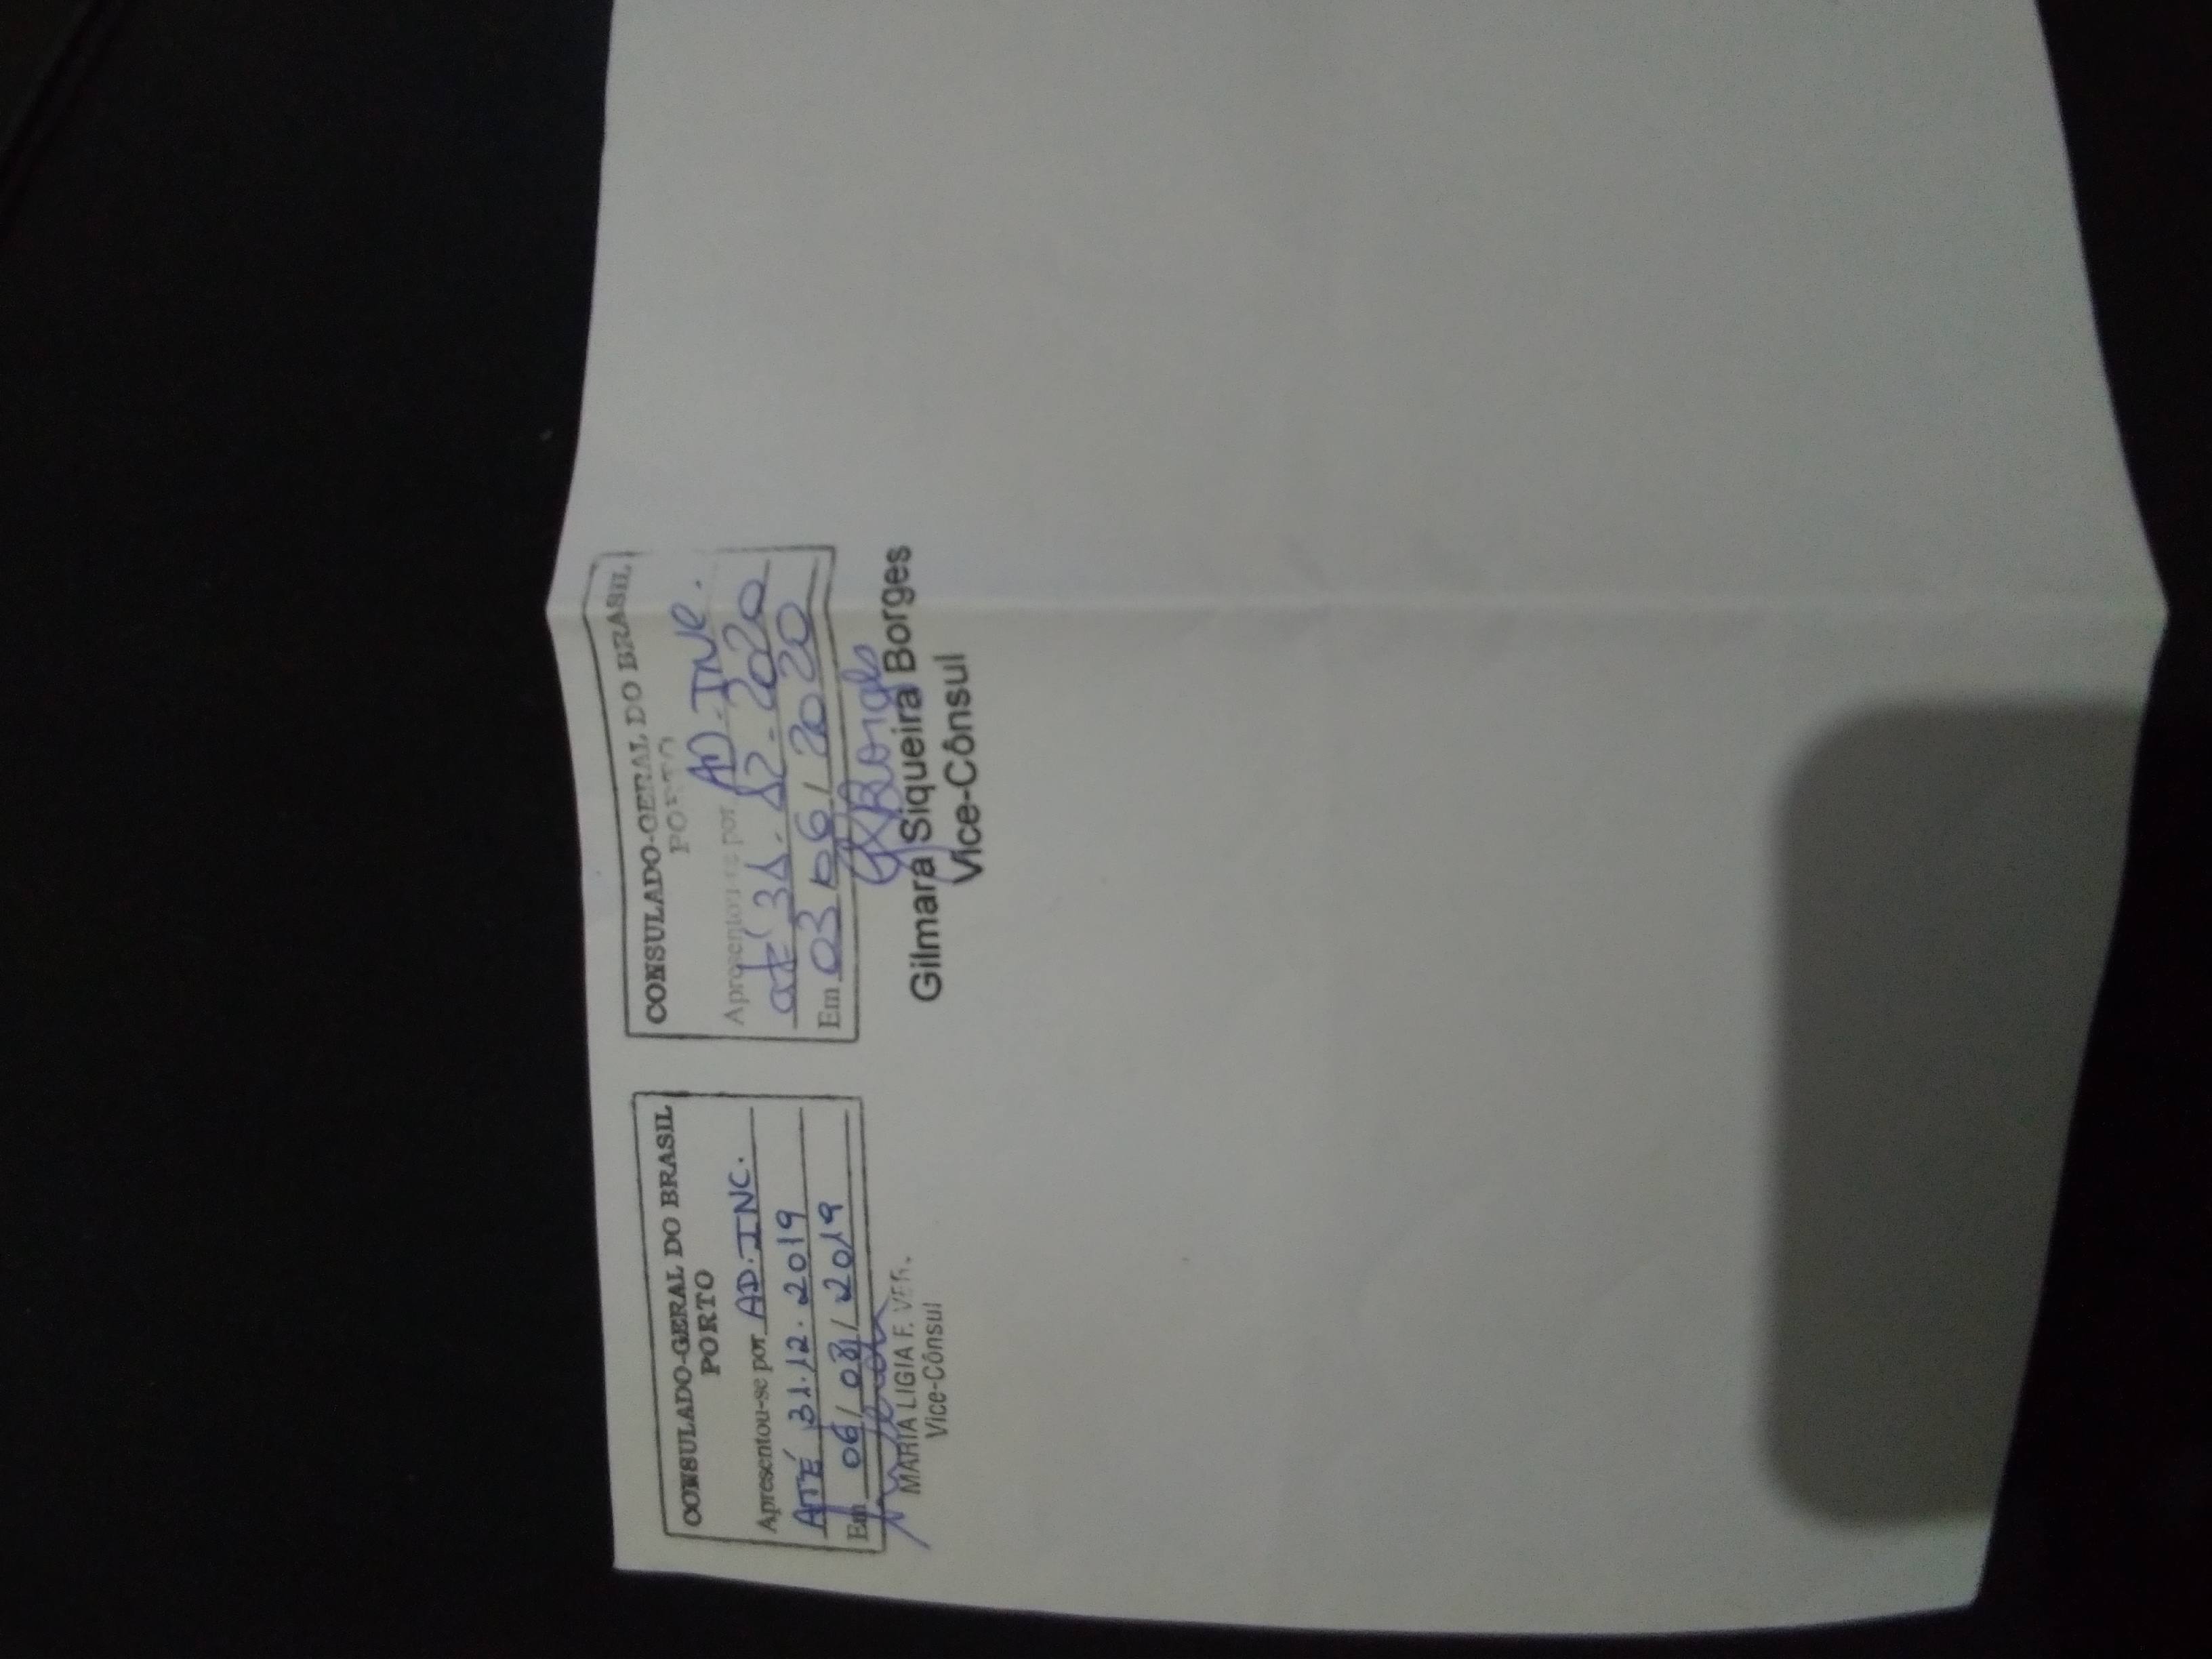 CONSULADO-GERAL DO BRASIL
PORTO
Apresentou-se por AD. INC.
ATÉ 31.12.2019
Em 06/08/2019
MARIA LIGIA F.
Vice-Cônsul
CONSULADO-GERAL DO BRASIL
PORTO
Apresentou-se por AD. INC.
até 31.12.2020
Em 03/06/2020
GSBorges
Gilmara Siqueira Borges
Vice-Cônsul